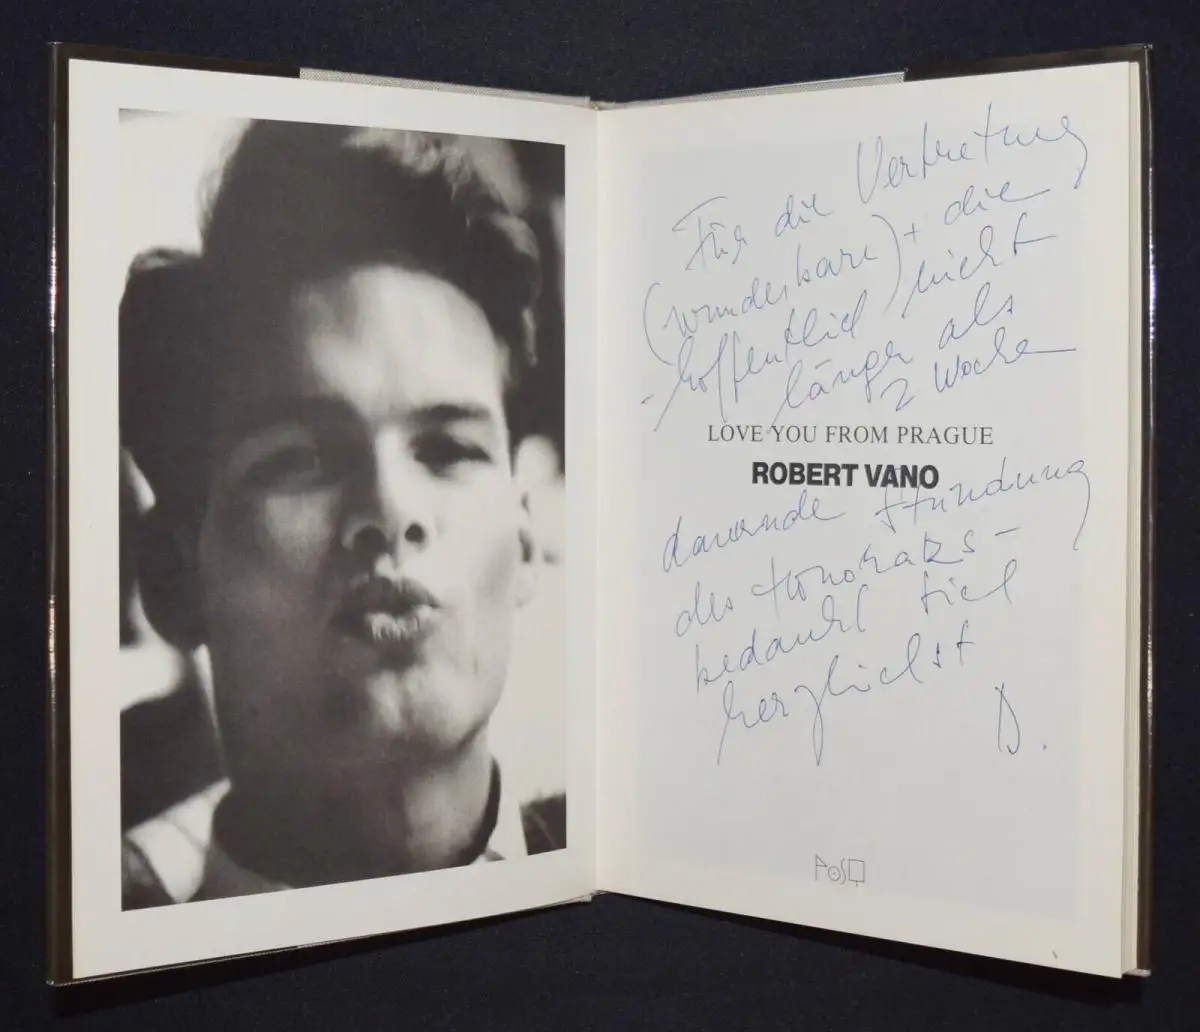 Für die Vertretung
(wunderbare) + die
- hoffentlich nicht
länger als
2 Wochen
LOVE YOU FROM PRAGUE
ROBERT VANO
dauernde Stundung
des Honorars -
bedankt sich
herzlichst
D.
POSQ